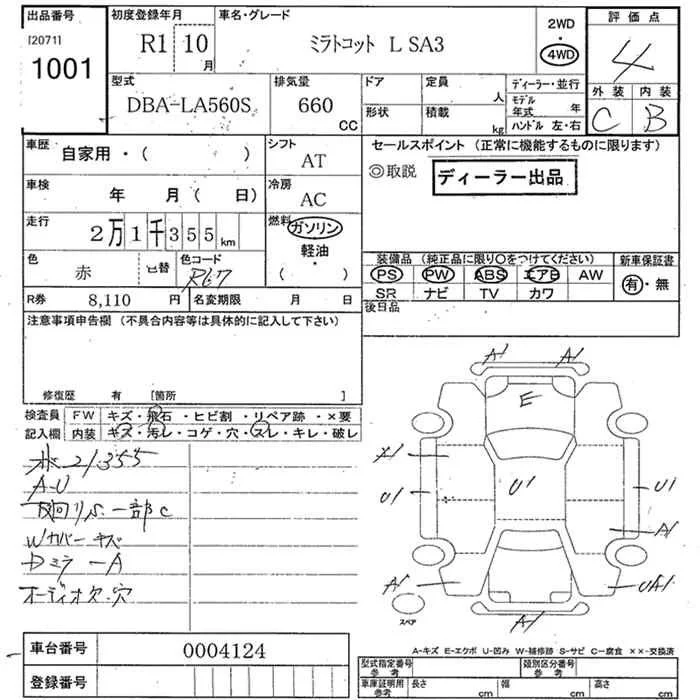 出品番号
[20711]
1001
初度登録年月
R1 10月
車名・グレード
ミラトコット L SA3
2WD
・
4WD
評価点
4
外装 内装
C B
型式
DBA-LA560S
排気量
660 CC
ドア
定員
人
形状
積載
kg
ディーラー・並行
モデル年式 年
ハンドル 左・右
車歴
自家用・( )
シフト
AT
車検
年 月( 日)
冷房
AC
走行
2万1千355km
燃料
ガソリン
・
軽油
・
( )
色
赤
色替
色コード
R67
R券 8,110 円
名変期限 月 日
セールスポイント (正常に機能するものに限ります)
◎取説
ディーラー出品
装備品 (純正品に限り○をつけてください)
PS PW ABS エアB AW
SR ナビ TV カワ
新車保証書
有・無
後日品
注意事項申告欄 (不具合内容等は具体的に記入して下さい)
修復歴 有 [箇所 ]
検査員記入欄
FW キズ・飛石・ヒビ割・リペア跡・×要
内装 キズ・汚レ・コゲ・穴・スレ・キレ・破レ
21355
A-U
下廻りS.一部C
Wカバーキズ
DミラーA
オーディオ欠.穴
A1 A1
E
A1
U1 U1 U1
A1
A1 UA1
A1
スペア
A-キズ E-エクボ U-凹み W-補修跡 S-サビ C-腐食 ××-交換済
車台番号 0004124
登録番号
型式指定番号 参考
類別区分番号 参考
車庫証明用 参考
長さ cm 幅 cm 高さ cm